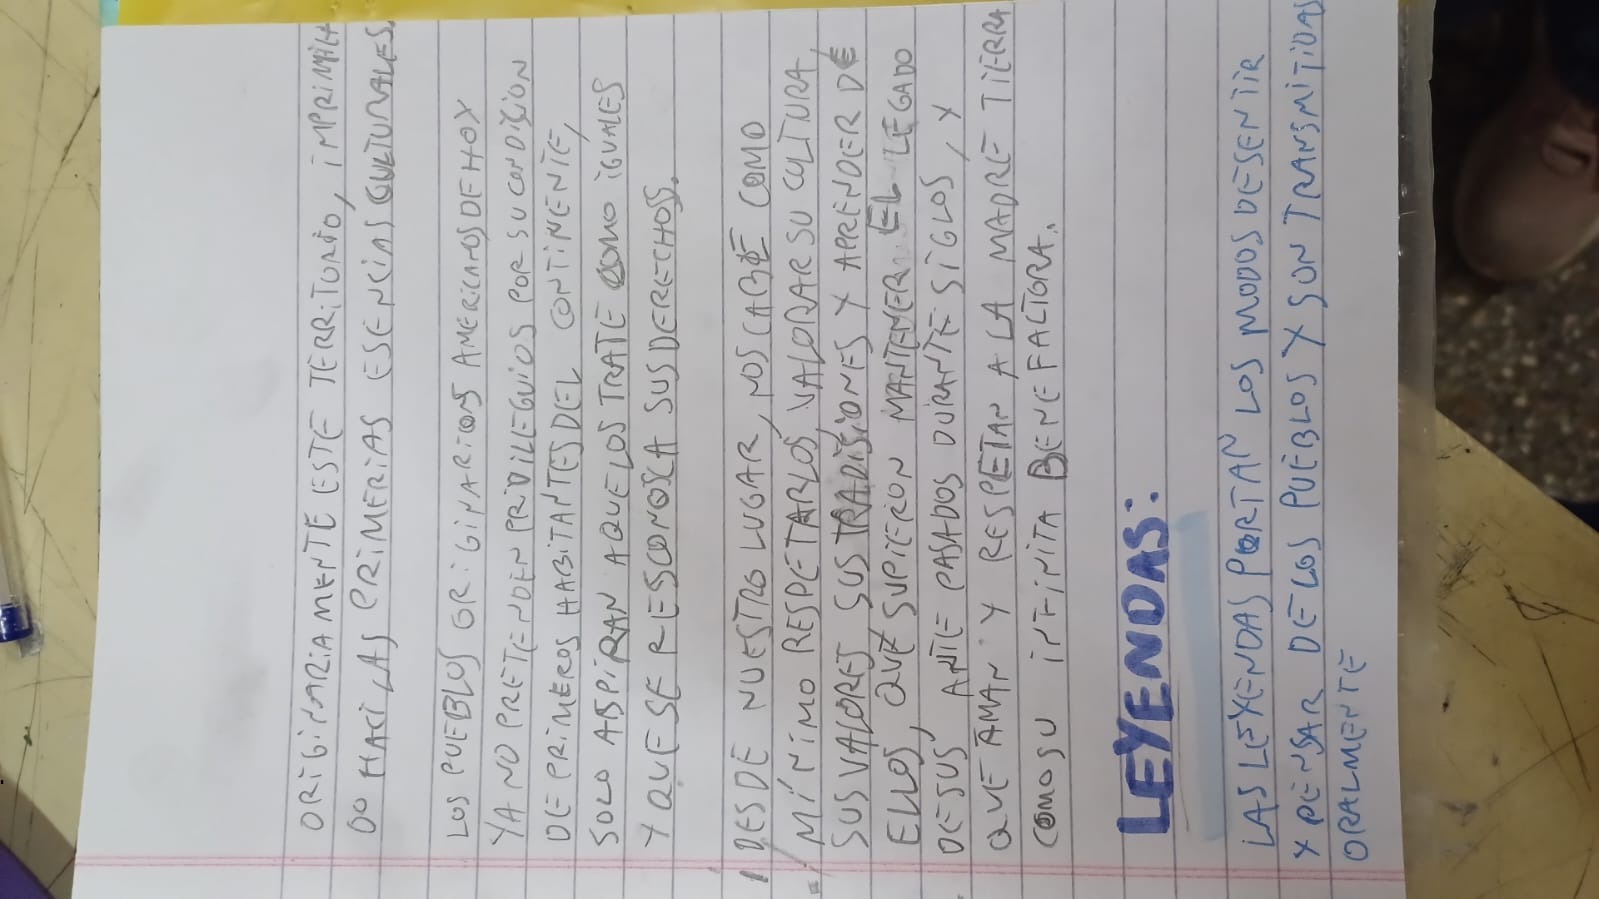 ORIGINARIAMENTE ESTE TERRITORIO, IMPRIMIEN
DO HACI LAS PRIMERIAS ESENCIAS CULTURALES.
LOS PUEBLOS ORIGINARIOS AMERICANOS DE HOY
YA NO PRETENDEN PRIVILEGUIOS POR SU CONDISION
DE PRIMEROS HABITANTES DEL CONTINENTE,
SOLO ASPIRAN AQUE LOS TRATE COMO IGUALES
Y QUE SE RESCONOSCA SUS DERECHOS.
DESDE NUESTRO LUGAR, NOS CABE COMO
MÍNIMO RESPETARLOS, VALORAR SU CULTURA,
SUS VALORES SUS TRADISIONES Y APRENDER DE
ELLOS, QUE SUPIERON MANTENER EL LEGADO
DE SUS ANTE PASADOS DURANTE SIGLOS, Y
QUE AMAN Y RESPETAN A LA MADRE TIERRA
COMO SU INFINITA BENEFACTORA.
LEYENDAS:
LAS LEYENDAS PORTAN LOS MODOS DE SENTIR
Y PENSAR DE LOS PUEBLOS Y SON TRANSMITIDAS
ORALMENTE